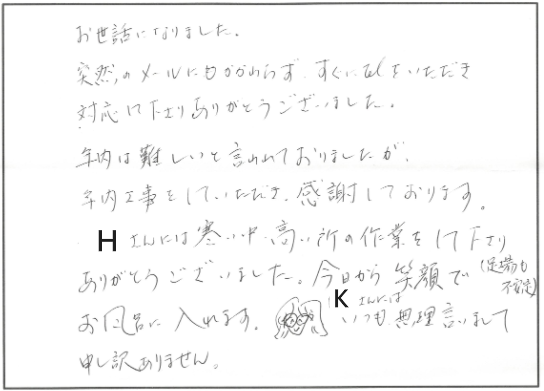 お世話になりました。
突然のメールにもかかわらず、すぐにtelをいただき
対応して下さりありがとうございました。
年内は難しいと言われておりましたが、
年内工事をしていただき、感謝しております。
Hさんには寒い中、高い所の作業をして下さり
ありがとうございました。今日から笑顔で(足場も不安定)
お風呂に入れます。Kさんにはいつも無理言いまして
申し訳ありません。